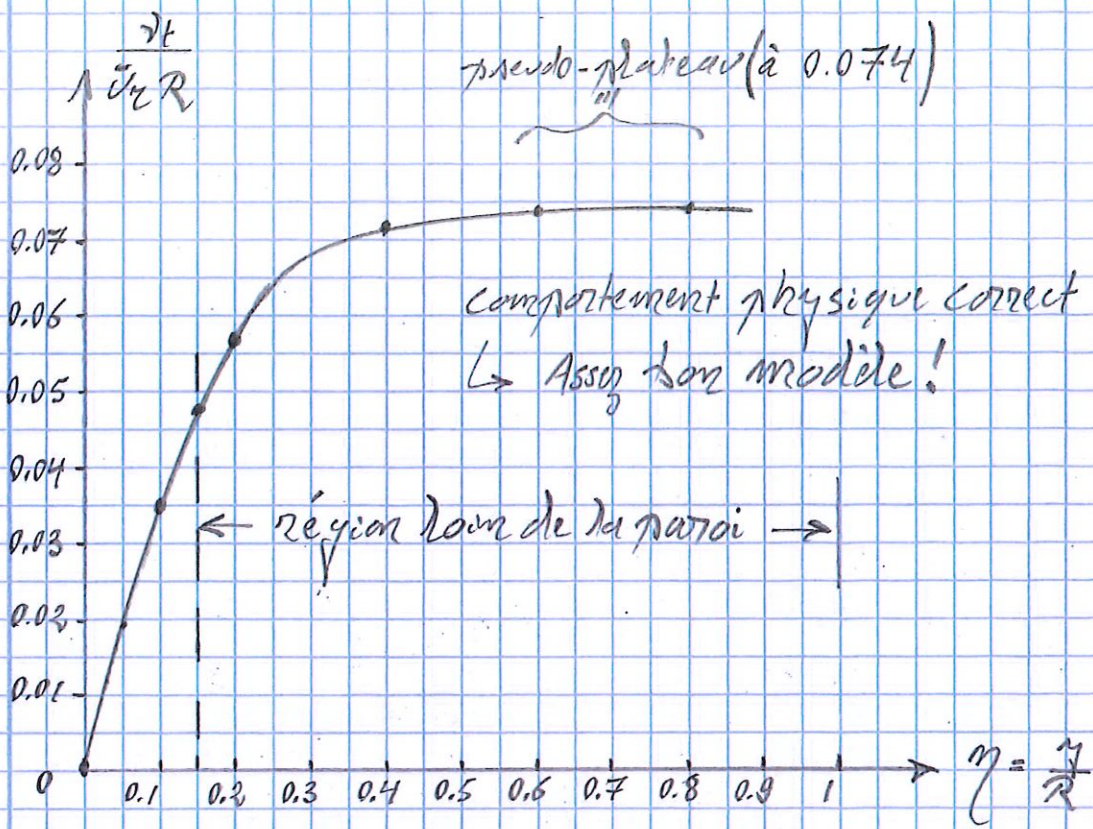 νt
ū_τ R
pseudo-plateau (à 0.074)
0.08
0.07
0.06
0.05
0.04
0.03
0.02
0.01
0
comportement physique correct
↳ Assez bon modèle !
← région loin de la paroi →
0.1 0.2 0.3 0.4 0.5 0.6 0.7 0.8 0.9 1
η = y
R